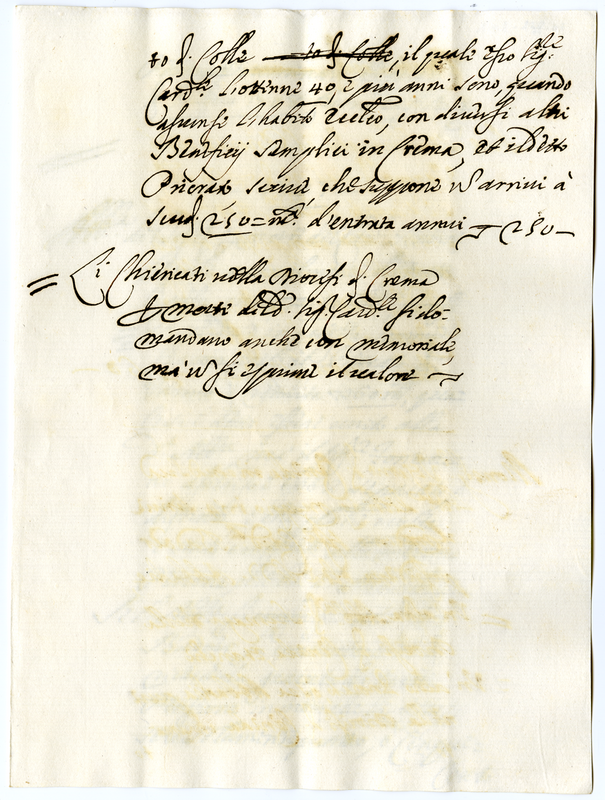 to di Colle to di Colle, il quale esso Sigre
Cardle l'ottenne 40, e più anni sono, quando
assunse l'habito Eccleo, con diversi altri
Beneficij semplici in Crema, et il detto
Priorato scrive che suppone no arrivi à
scudi 250 = mta d'entrata annui 250 —
= Li Chiericati nella Diocesi di Crema
p morte del d. Sig. Cardle si do-
mandano anche con memoriale,
mà no si esprime il valore